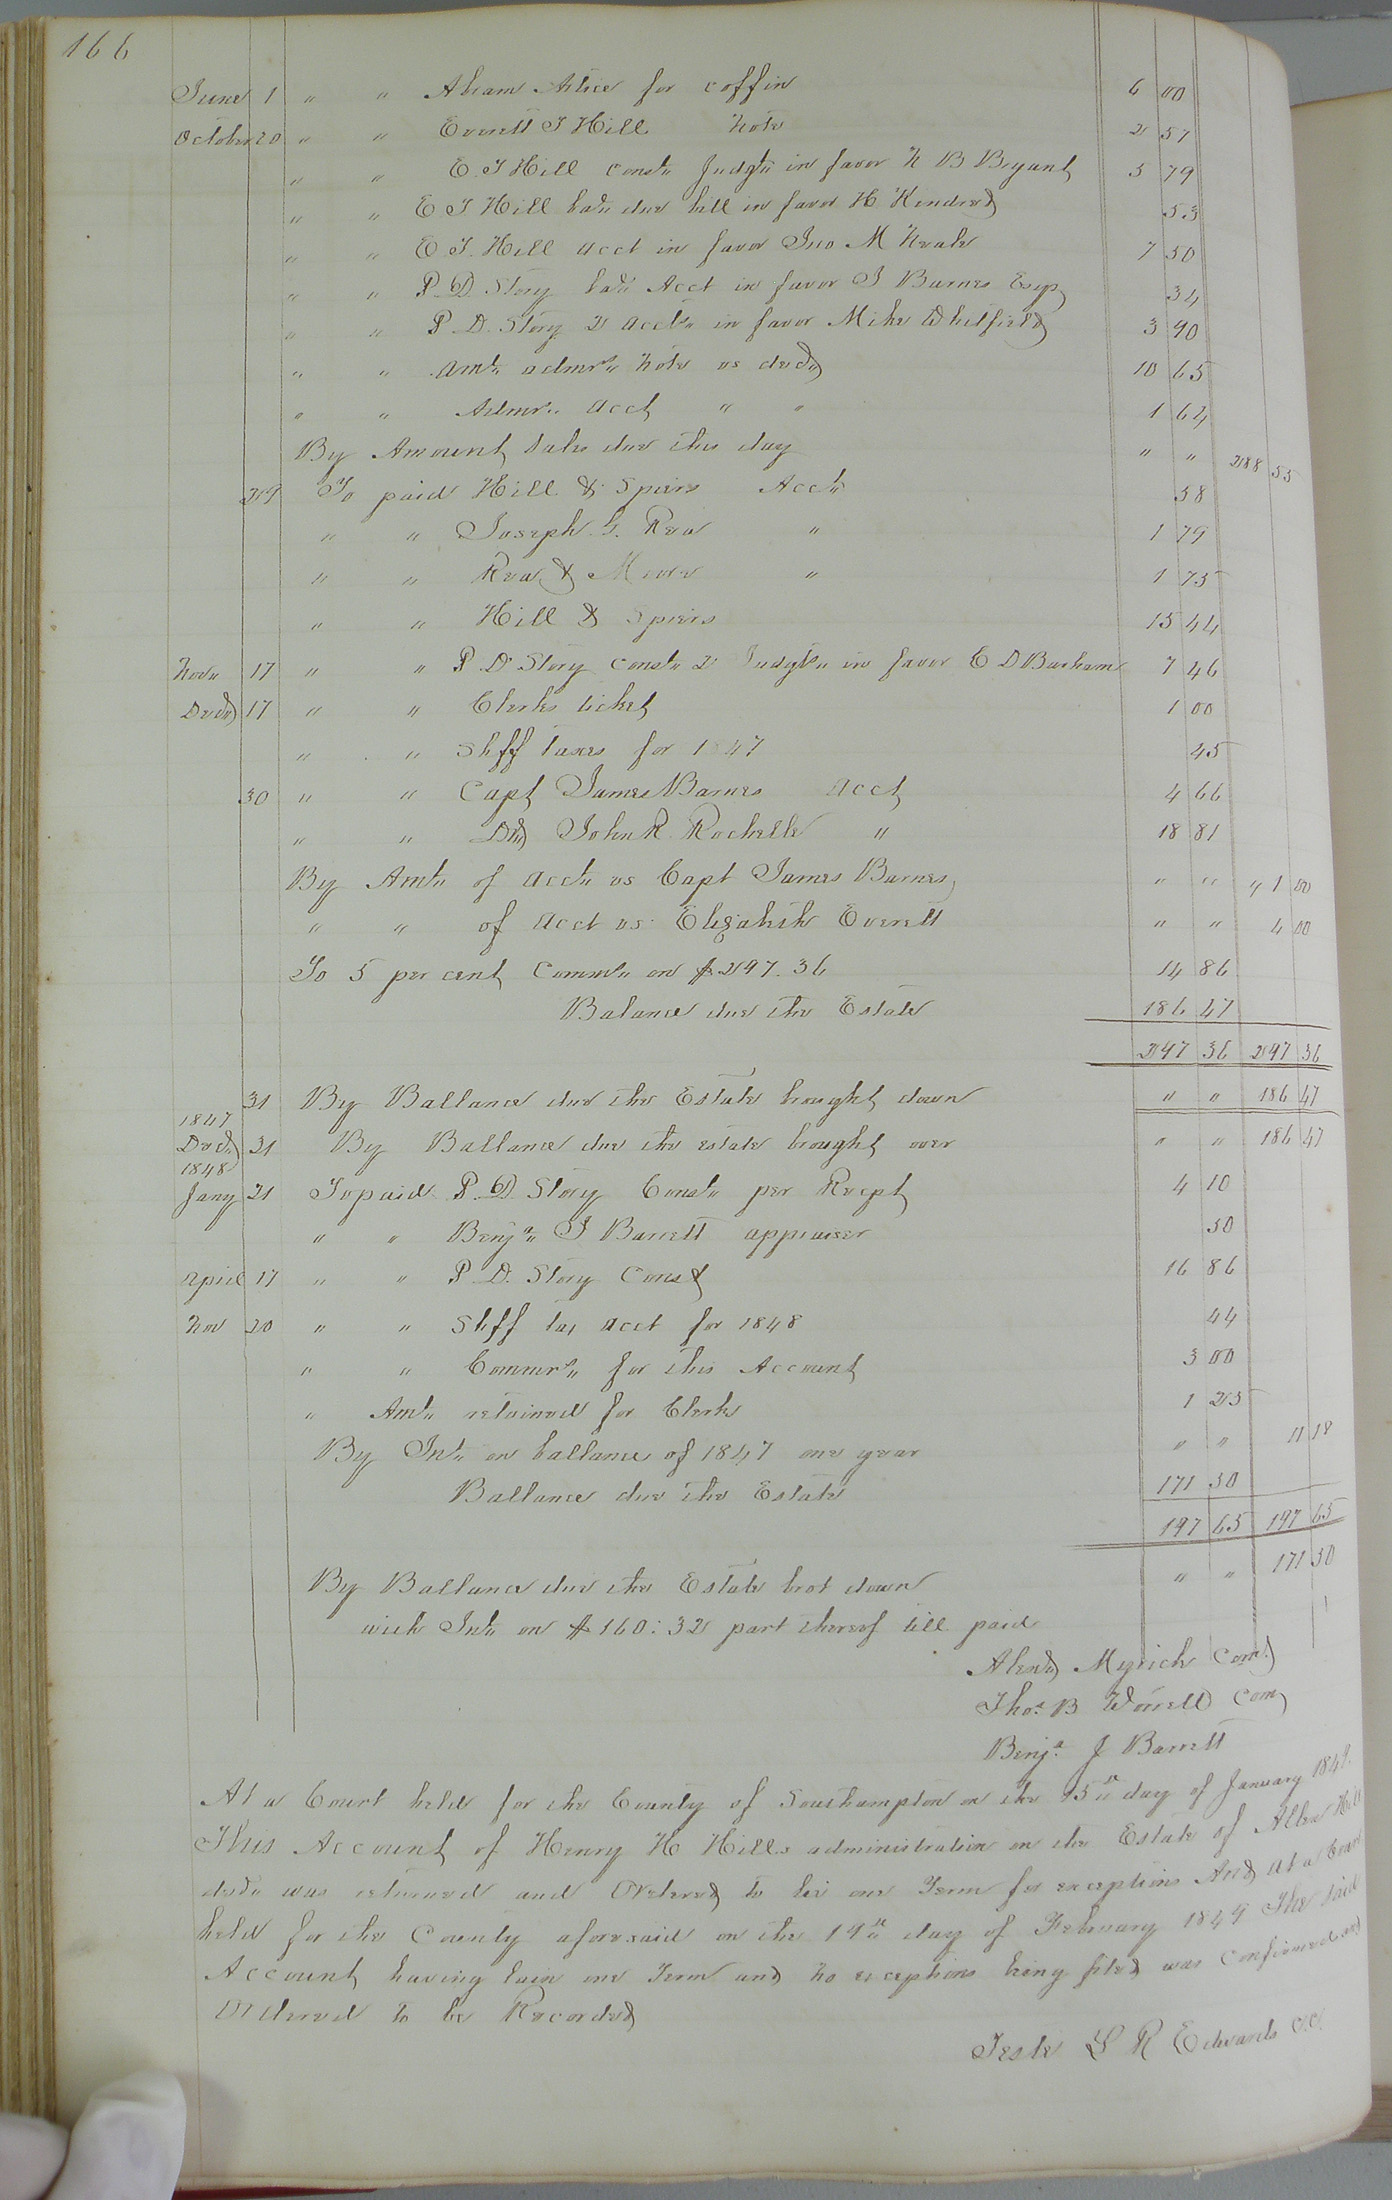 166
June 1 " " Abram Artice for coffin 6 00
October 20 " " Everett T Hill Note 2 57
" " E. T Hill Const" Judgt" in favor N B Bryant 5 79
" " E T Hill bal" due bill in favor H Kindred 53
" " E T. Hill acct in favor Jno M Neale 7 50
" " P. D. Story bal" Acct in favor J Barnes Esqr 34
" " P. D. Story 2 accts" in favor Mike Whitfield 3 90
" " Amt" admrs" Note vs decd 10 65
" " Admr" acct " " 1 64
By Amount Sales due this day " " 288 55
29 To paid Hill & Spiers Acct" 58
" " Joseph G. Rea " 1 79
" " Rea & Moore " 1 75
" " Hill & Spiers 15 44
Nov" 17 " " P. D Story Const" 2 Judgts" in favor E D Barham 7 46
Decd 17 " " Clerks ticket 1 00
" " Shff taxes for 1847 45
30 " " Capt James Barnes acct 4 66
" " Dr John R. Rochelle " 18 81
By Amt" of acct" vs Capt James Barnes " " 4 81
" " of acct vs Elizabeth Everett " " 4 00
To 5 per cent Commn" on $297.36 14 86
Balance due the Estate 186 47
297 36 297 36
31 By Ballance due the Estate brought down " " 186 47
1847
Decd 31 By Ballance due the estate brought over " " 186 47
1848
Jany 21 To paid P. D. Story Const" per Recept 4 10
" " Benja" J Barrett appraiser 50
April 17 " " P. D. Story Const 16 86
Nov 20 " " Shff tax acct for 1848 44
" " Commrs" for this Account 3 00
" Amt" retained for Clerks 1 25
By Int" on ballance of 1847 one year " " 11 18
Ballance due the Estate 171 50
197 65 197 65
By Ballance due the Estate brot down " " 171 50
with Int" on $160:32 part thereof till paid
Alexd Myrick Comr
Thos. B Worrell Com
Benja. J Barrett
At a Court held for the County of Southampton on the 15th day of January 1849.
This Account of Henry H Hills administration on the Estate of Allen Hill
decd" was returned and Ordered to lie one Term for exceptions And at a Court
held for the County aforesaid on the 19th day of February 1849 The said
Account having lain one Term and no exceptions being filed was confirmed and
Ordered to be Recorded
Teste L R Edwards C.C.